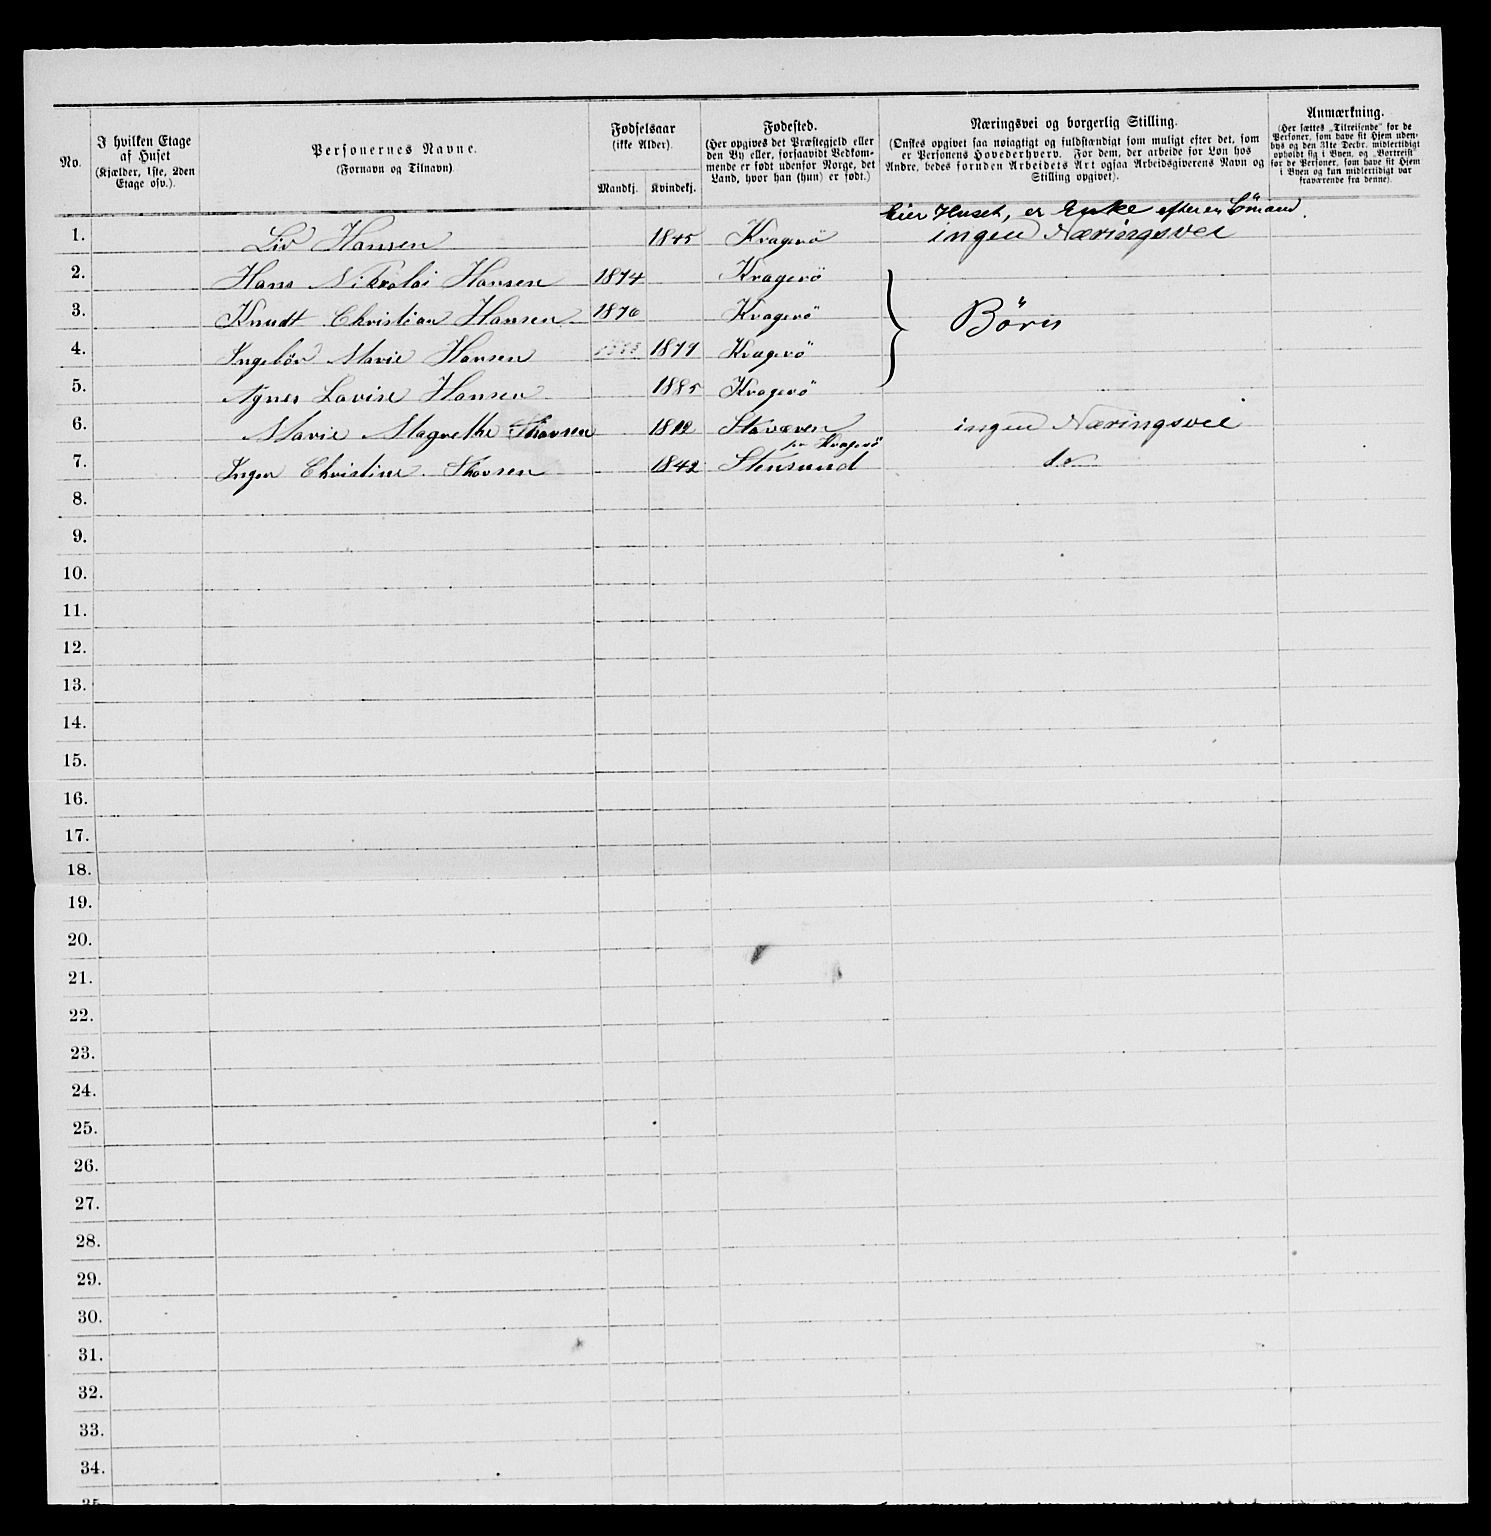 No.
I hvilken Etage af Huset
(Kjælder, 1ste, 2den Etage osv.).
Personernes Navne.
(Fornavn og Tilnavn)
Fødselsaar
(ikke Alder).
Mandkj. Kvindekj.
Fødested.
(Her opgives det Præstegjeld eller
den By eller, forsaavidt Vedkom-
mende er født udenfor Norge, det
Land, hvor han (hun) er født.)
Næringsvei og borgerlig Stilling.
(Ønskes opgivet saa nøiagtigt og fuldstændigt som muligt efter det, som
er Personens Hovederhverv. For dem, der arbeide for Løn hos
Andre, bedes foruden Arbeidets Art ogsaa Arbeidsgiverens Navn og
Stilling opgivet).
Anmærkning.
(Her sættes „Tilreisende“ for de
Personer, som have sit Hjem uden-
bys og den 31te Decbr. midlertidigt
opholdt sig i Byen, og „Bortreist“
for de Personer, som have sit Hjem
i Byen og kun midlertidigt var
fraværende fra denne).
Eier Huset, er Enke efter en Sömand.
1. Liv Hansen 1845 Kragerö ingen Næringsvei
2. Hans Nikolai Hansen 1874 Kragerö
3. Knudt Christian Hansen 1876 Kragerö Börn
4. Ingebör Marie Hansen 1879 Kragerö
5. Agnes Lovise Hansen 1885 Kragerö
6. Marie Magrethe Thovsen 1812 Staværen ingen Næringsvei
pr Kragerö
7. Inger Christine Thovsen 1842 Stensund do
8.
9.
10.
11.
12.
13.
14.
15.
16.
17.
18.
19.
20.
21.
22.
23.
24.
25.
26.
27.
28.
29.
30.
31.
32.
33.
34.
35